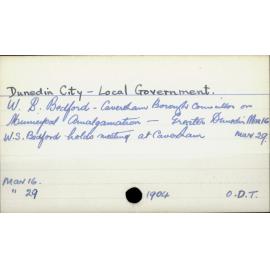 Dunedin City - Local Government.
W. S. Bedford - Caversham Borough Councillor on
Municipal Amalgamation - Greater Dunedin Mar 16
W.S. Bedford holds meeting at Caversham Mar 29.
Mar 16.
" 29 1904 O.D.T.